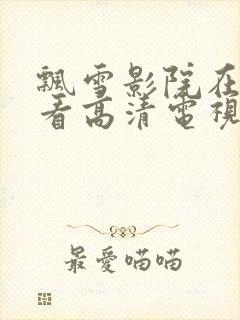 飄雪影院在
看高清電視
最愛喵喵